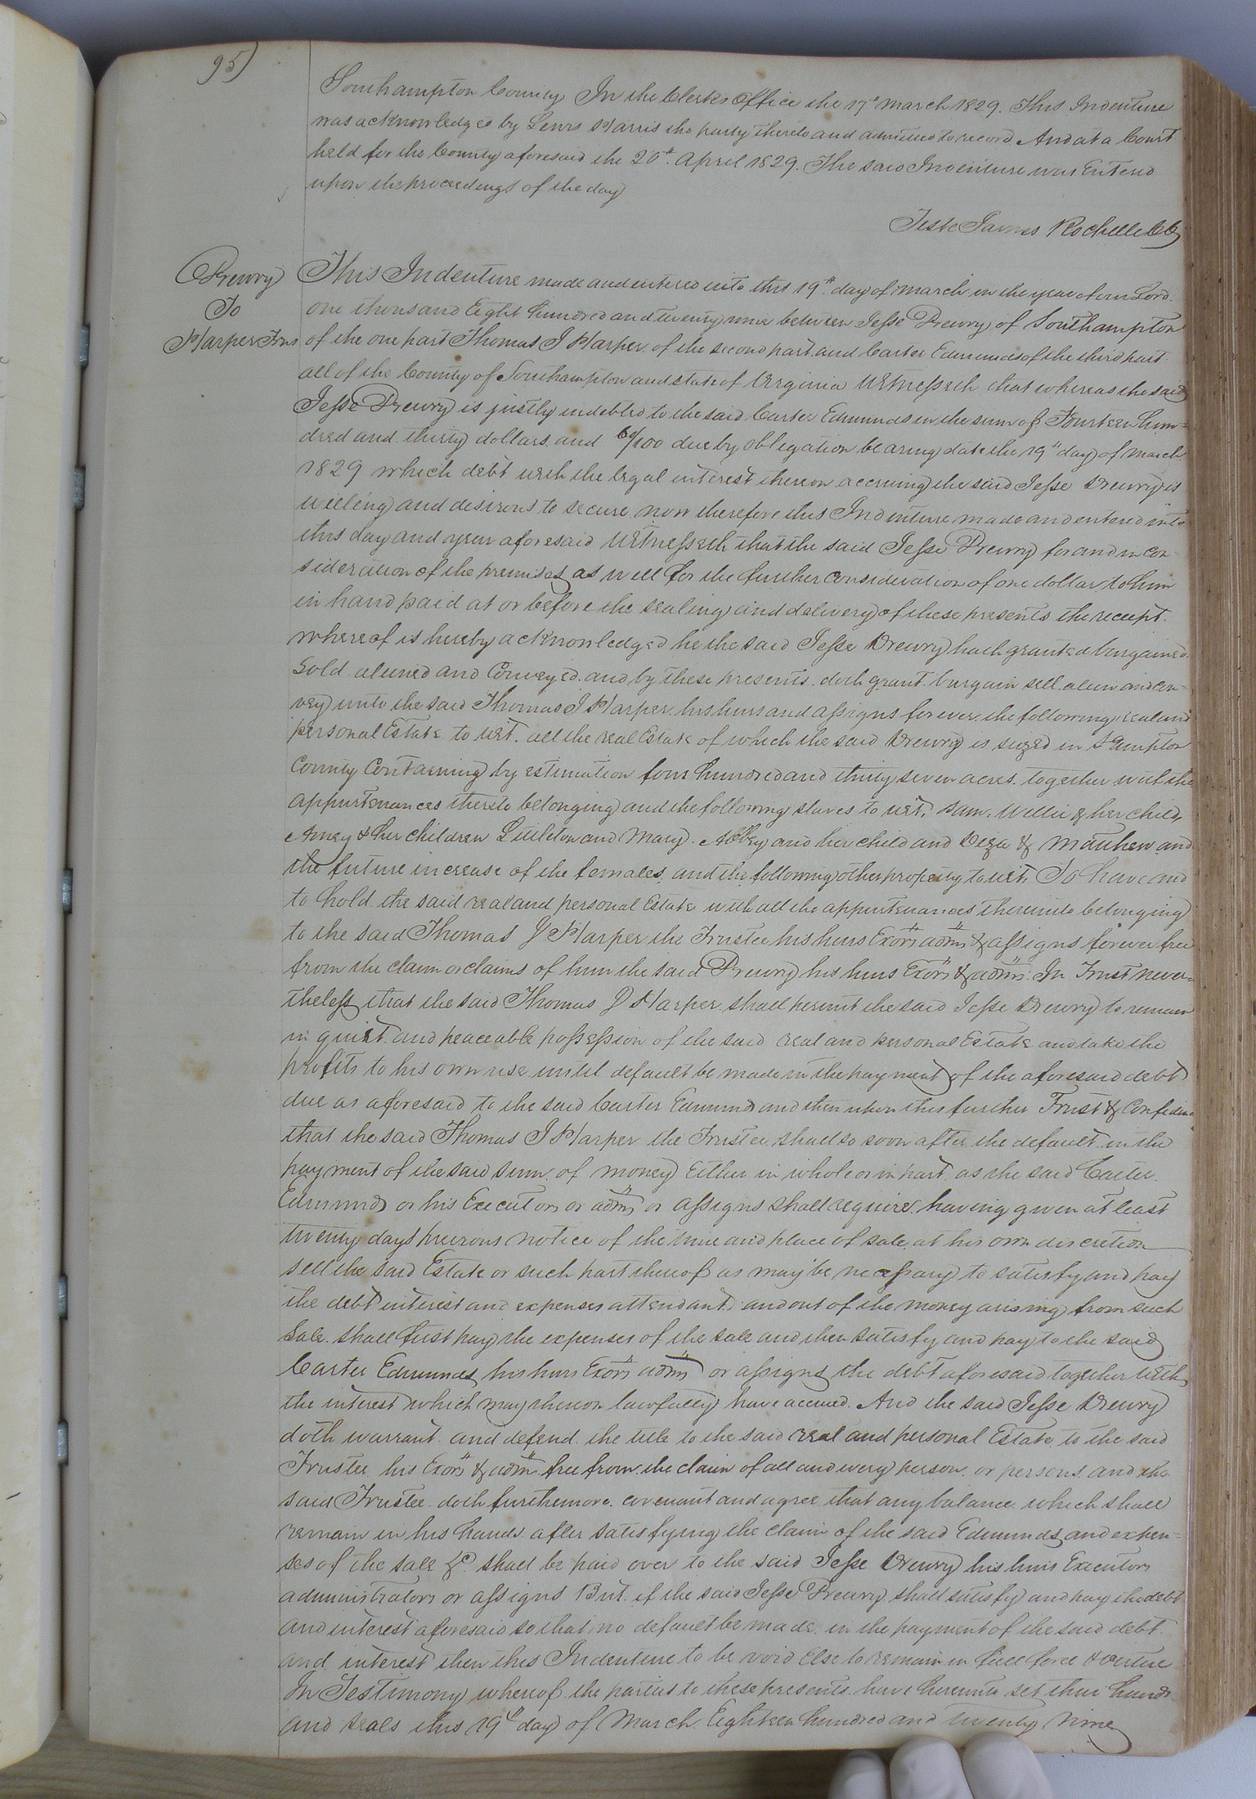 95)
Southampton County In the Clerks Office the 17th March 1829. This Indenture
was acknowledged by Lewis Harris the party thereto and admitted to record And at a Court
held for the County aforesaid the 20th April 1829. The said Indenture was Enterd
upon the proceedings of the day
Teste James Rochelle CC
Drewry
To
Harper Trus
This Indenture made and entered into this 19th day of March in the year of our Lord
one thousand Eight hundred and twenty nine between Jesse Drewry of Southampton
of the one part Thomas J Harper of the second part and Carter Edmunds of the third part
all of the County of Southampton and state of Virginia Witnesseth that whereas the said
Jesse Drewry is justly indebted to the said Carter Edmunds in the sum of Fourteen hun=
dred and thirty dollars and /100 due by obligation bearing date the 19th day of March
1829 which debt with the legal interest thereon accruing the said Jesse Drewry is
willing and desirous to secure now therefore this Indenture made and entered into
this day and year aforesaid Witnesseth that the said Jesse Drewry for and in con-
sideration of the premises as well for the further consideration of one dollar to him
in hand paid at or before the sealing and delivery of these presents the receipt
whereof is hereby acknowledged he the said Jesse Drewry hath granted bargained
Sold aliened and Conveyed and by these presents doth grant bargain sell alien and con-
vey unto the said Thomas J Harper his heirs and assigns forever the following real and
personal Estate to wit. all the real Estate of which the said Drewry is seized in S'hampton
County Containing by estimation four hundred and thirty seven acres together with the
appurtenances thereto belonging and the following slaves to wit, Sam, Willie & her child
Amey & her children Littleton and Mary. Abby and her child and & Mathew and
the future increase of the females, and the following other property to wit To have and
to hold the said real and personal Estate with all the appurtenances thereunto belonging
to the said Thomas J Harper the Trustee his heirs Exors adms & assigns forever free
from the claim or claims of him the said Drewry his heirs Exors & adms. In Trust never-
theless that the said Thomas J Harper shall permit the said Jesse Drewry to remain
in quiet and peaceable possession of the said real and personal Estate and take the
profits to his own use until default be made in the payment of the aforesaid debt
due as aforesaid to the said Carter Edmunds and then upon this further Trust & Confiden
that the said Thomas J Harper the Trustee shall so soon after the default in the
payment of the said sum of money Either in whole or in part as the said Carter
Edmunds or his Executors or adms or assigns shall require. having given at least
twenty days previous notice of the time and place of sale at his own discretion
sell the said Estate or such part thereof as may be necessary to satisfy and pay
the debt interest and expenses attendant and out of the money arising from such
Sale shall first pay the expenses of the sale and then satisfy and pay to the said
Carter Edmunds his heirs Exors adms or assigns the debt aforesaid together with
the interest which may thereon lawfully have accrued. And the said Jesse Drewry
doth warrant and defend the title to the said real and personal Estate to the said
Trustee his Exors & adms free from the claim of all and every person or persons and the
said Trustee doth furthermore covenant and agree that any balance which shall
remain in his hands after satisfying the claim of the said Edmunds and expen-
ses of the sale &c shall be paid over to the said Jesse Drewry his heirs Executors
administrators or assigns But if the said Jesse Drewry shall satisfy and pay the debt
and interest aforesaid so that no default be made in the payment of the said debt
and interest then this Indenture to be void Else to remain in full force & virtue
In Testimony whereof the parties to these presents have hereunto set their hands
and seals this 19th day of March Eighteen hundred and twenty nine